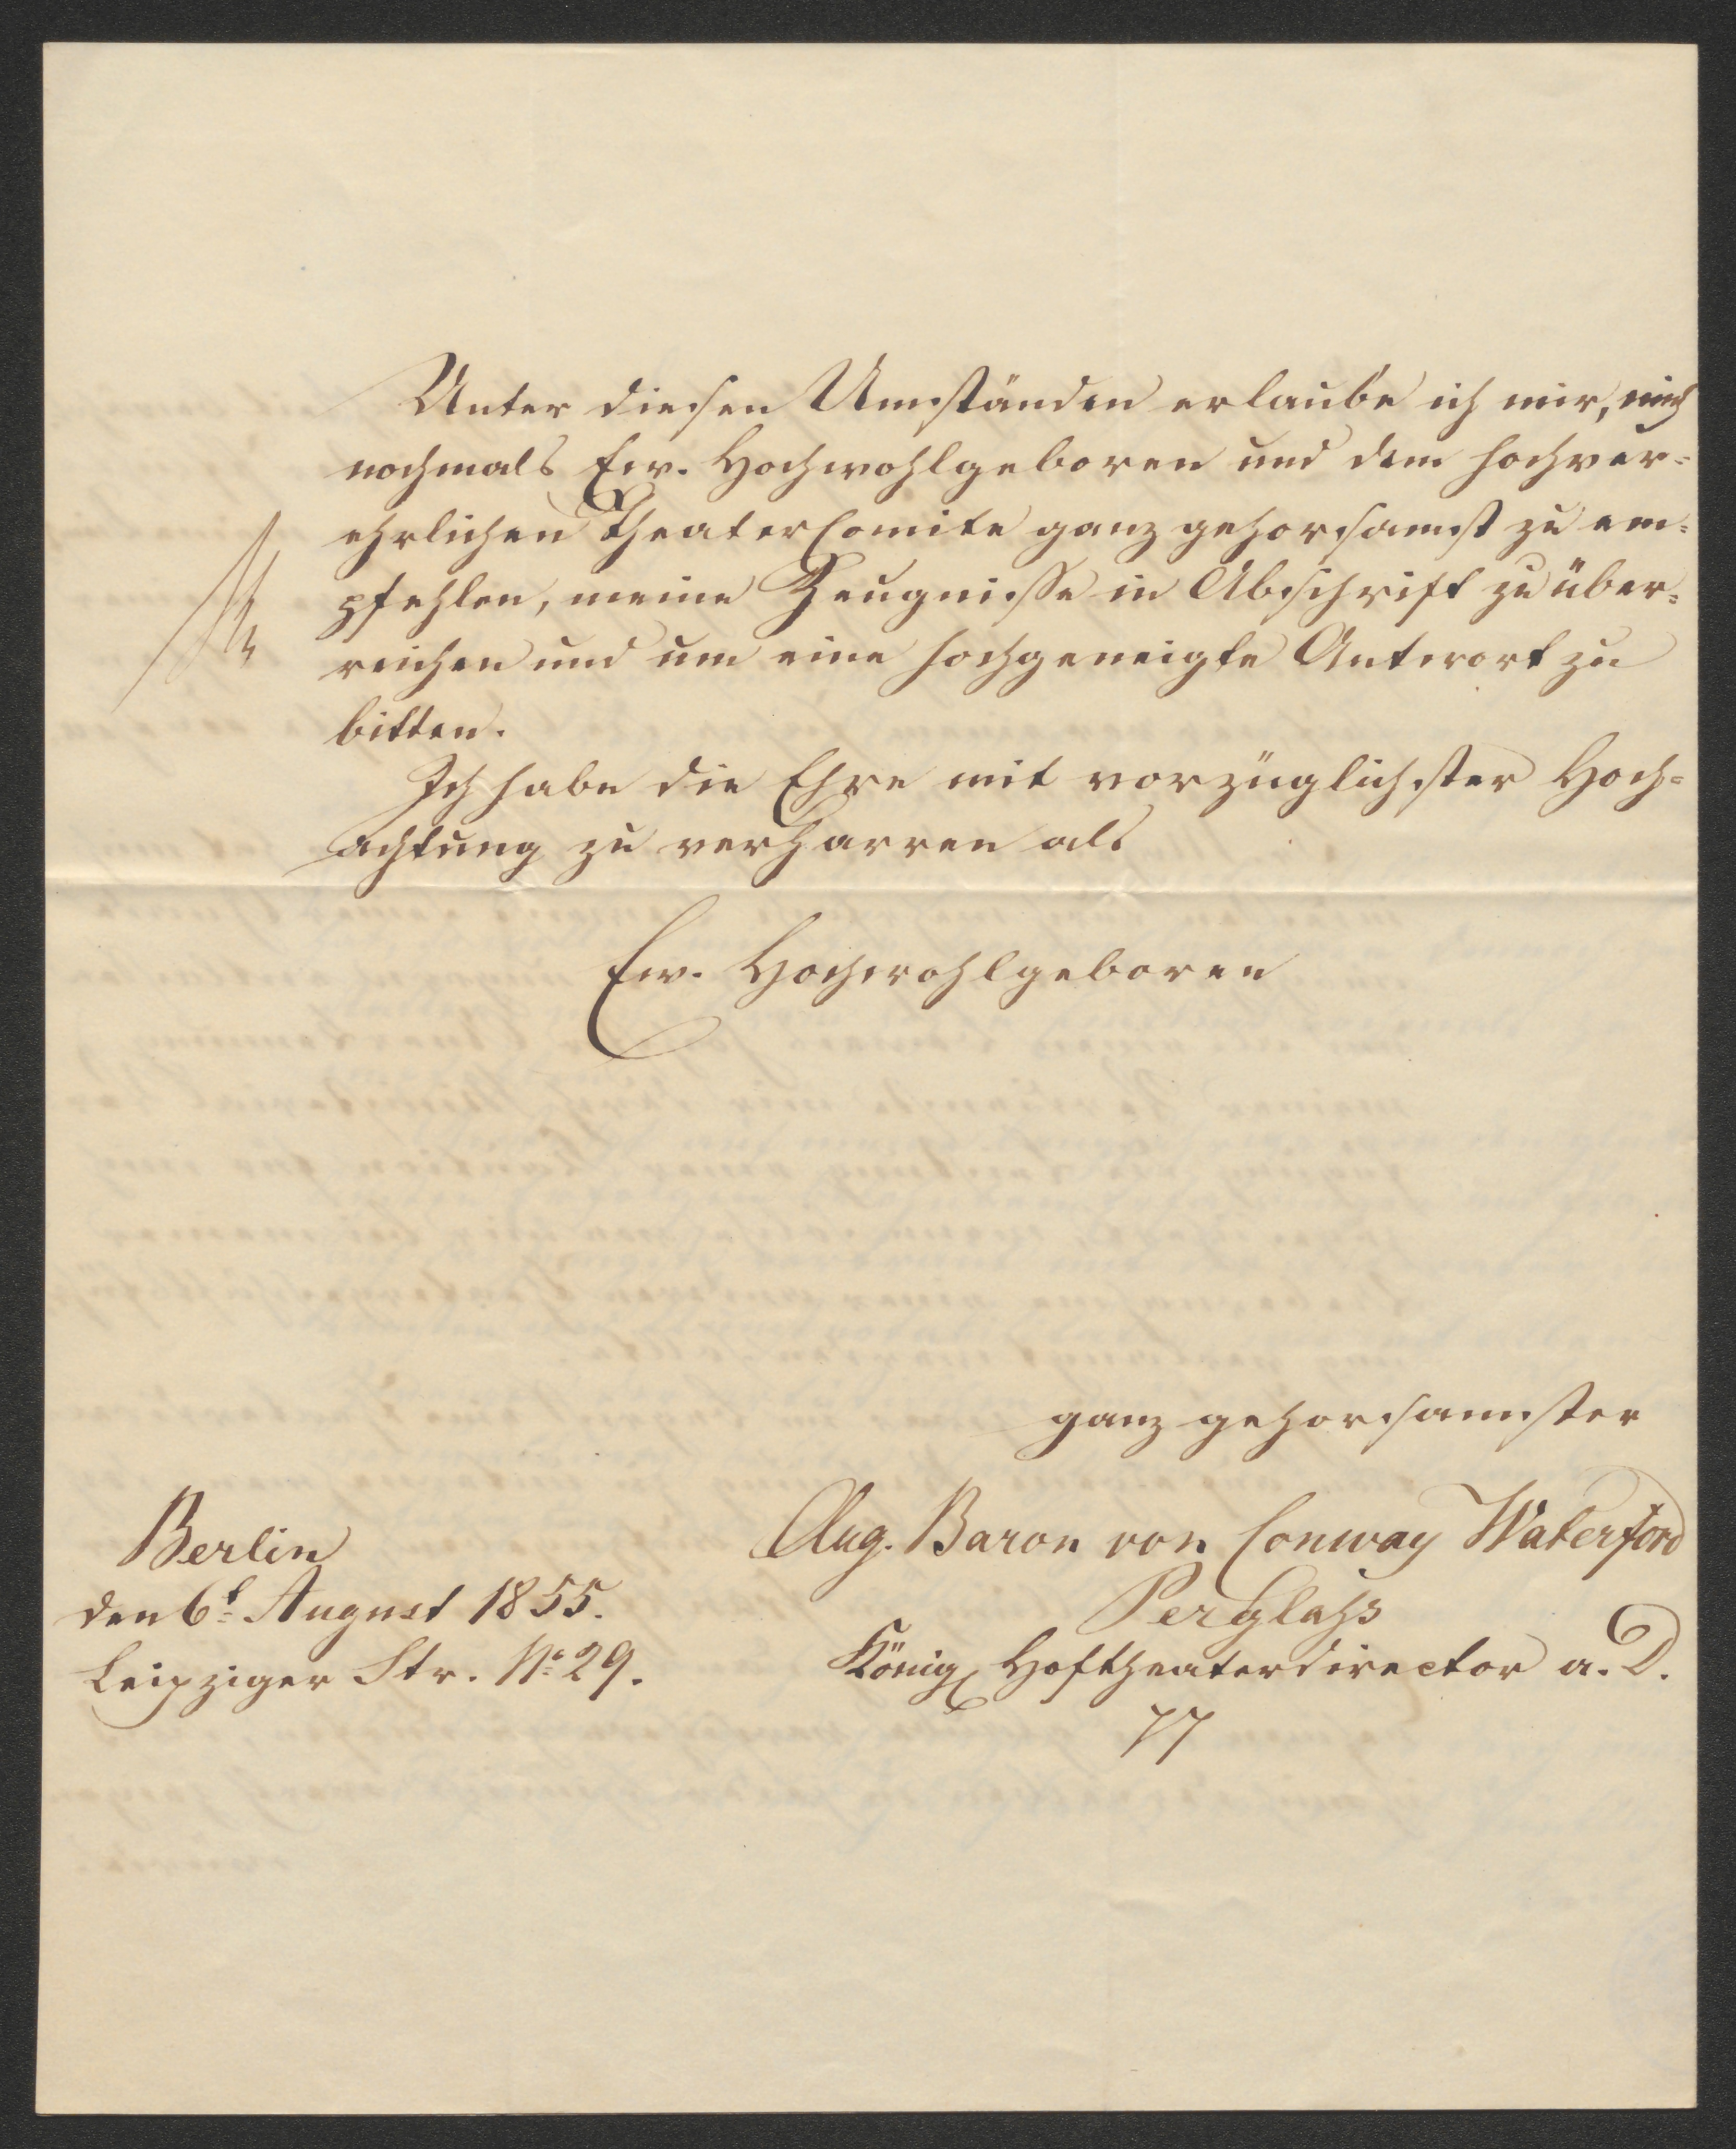 Unter diesen Umständen erlaube ich mir, mich
nochmals Ew. Hochwohlgeboren und dem hochver=
ehrlichen Theater Comite ganz gehorsamst zu em=
pfehlen, meine Zeugnisse in Abschrift zu über=
reichen und um eine hochgeneigte Antwort zu
bitten.
Ich habe die Ehre mit vorzüglichster Hoch=
achtung zu verharren als
Ew. Hochwohlgeboren
ganz gehorsamster
Aug. Baron von Conway Waterford
Perglahs
König. Hoftheaterdirector a. D.
Berlin
den 6t August 1855.
Leipziger Str. No 29.